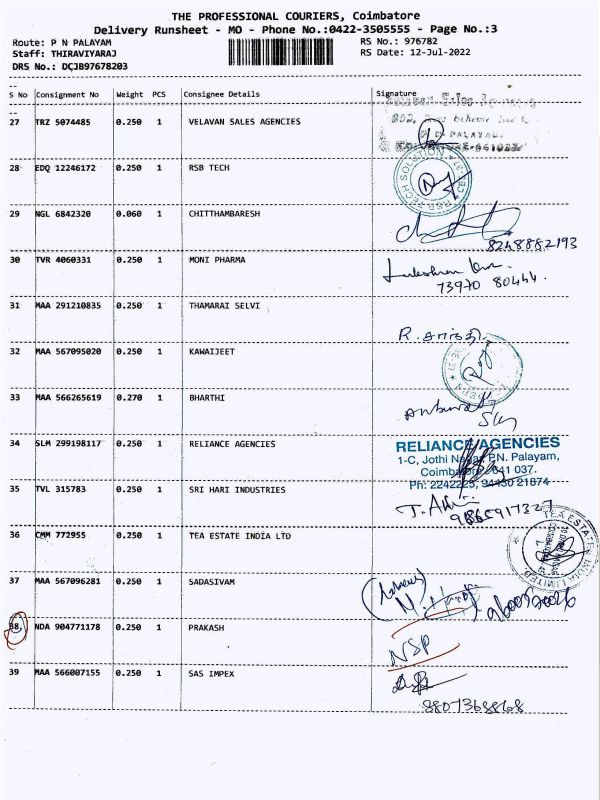 THE PROFESSIONAL COURIERS, Coimbatore
Delivery Runsheet - MO - Phone No.:0422-3505555 - Page No.:3
Route: P N PALAYAM RS No.: 976782
Staff: THIRAVIYARAJ RS Date: 12-Jul-2022
DRS No.: DCJB97678203
S No Consignment No Weight PCS Consignee Details Signature
27 TRZ 5074485 0.250 1 VELAVAN SALES AGENCIES
28 EDQ 12246172 0.250 1 RSB TECH
29 NGL 6842320 0.060 1 CHITTHAMBARESH
8248882193
30 TVR 4060331 0.250 1 MONI PHARMA
73970 80444.
31 MAA 291210835 0.250 1 THAMARAI SELVI
32 MAA 567095020 0.250 1 KAWAIJEET
33 MAA 566265619 0.270 1 BHARTHI
34 SLM 299198117 0.250 1 RELIANCE AGENCIES
RELIANCE AGENCIES
1-C, Jothi Nagar, P.N. Palayam,
Coimbatore 641 037.
Ph: 2242225, 94430 21874
35 TVL 315783 0.250 1 SRI HARI INDUSTRIES
36 CMM 772955 0.250 1 TEA ESTATE INDIA LTD
TEA ESTATE INDIA LIMITED
37 MAA 567096281 0.250 1 SADASIVAM
38 NDA 904771178 0.250 1 PRAKASH
NSP
39 MAA 566007155 0.250 1 SAS IMPEX
8807368868